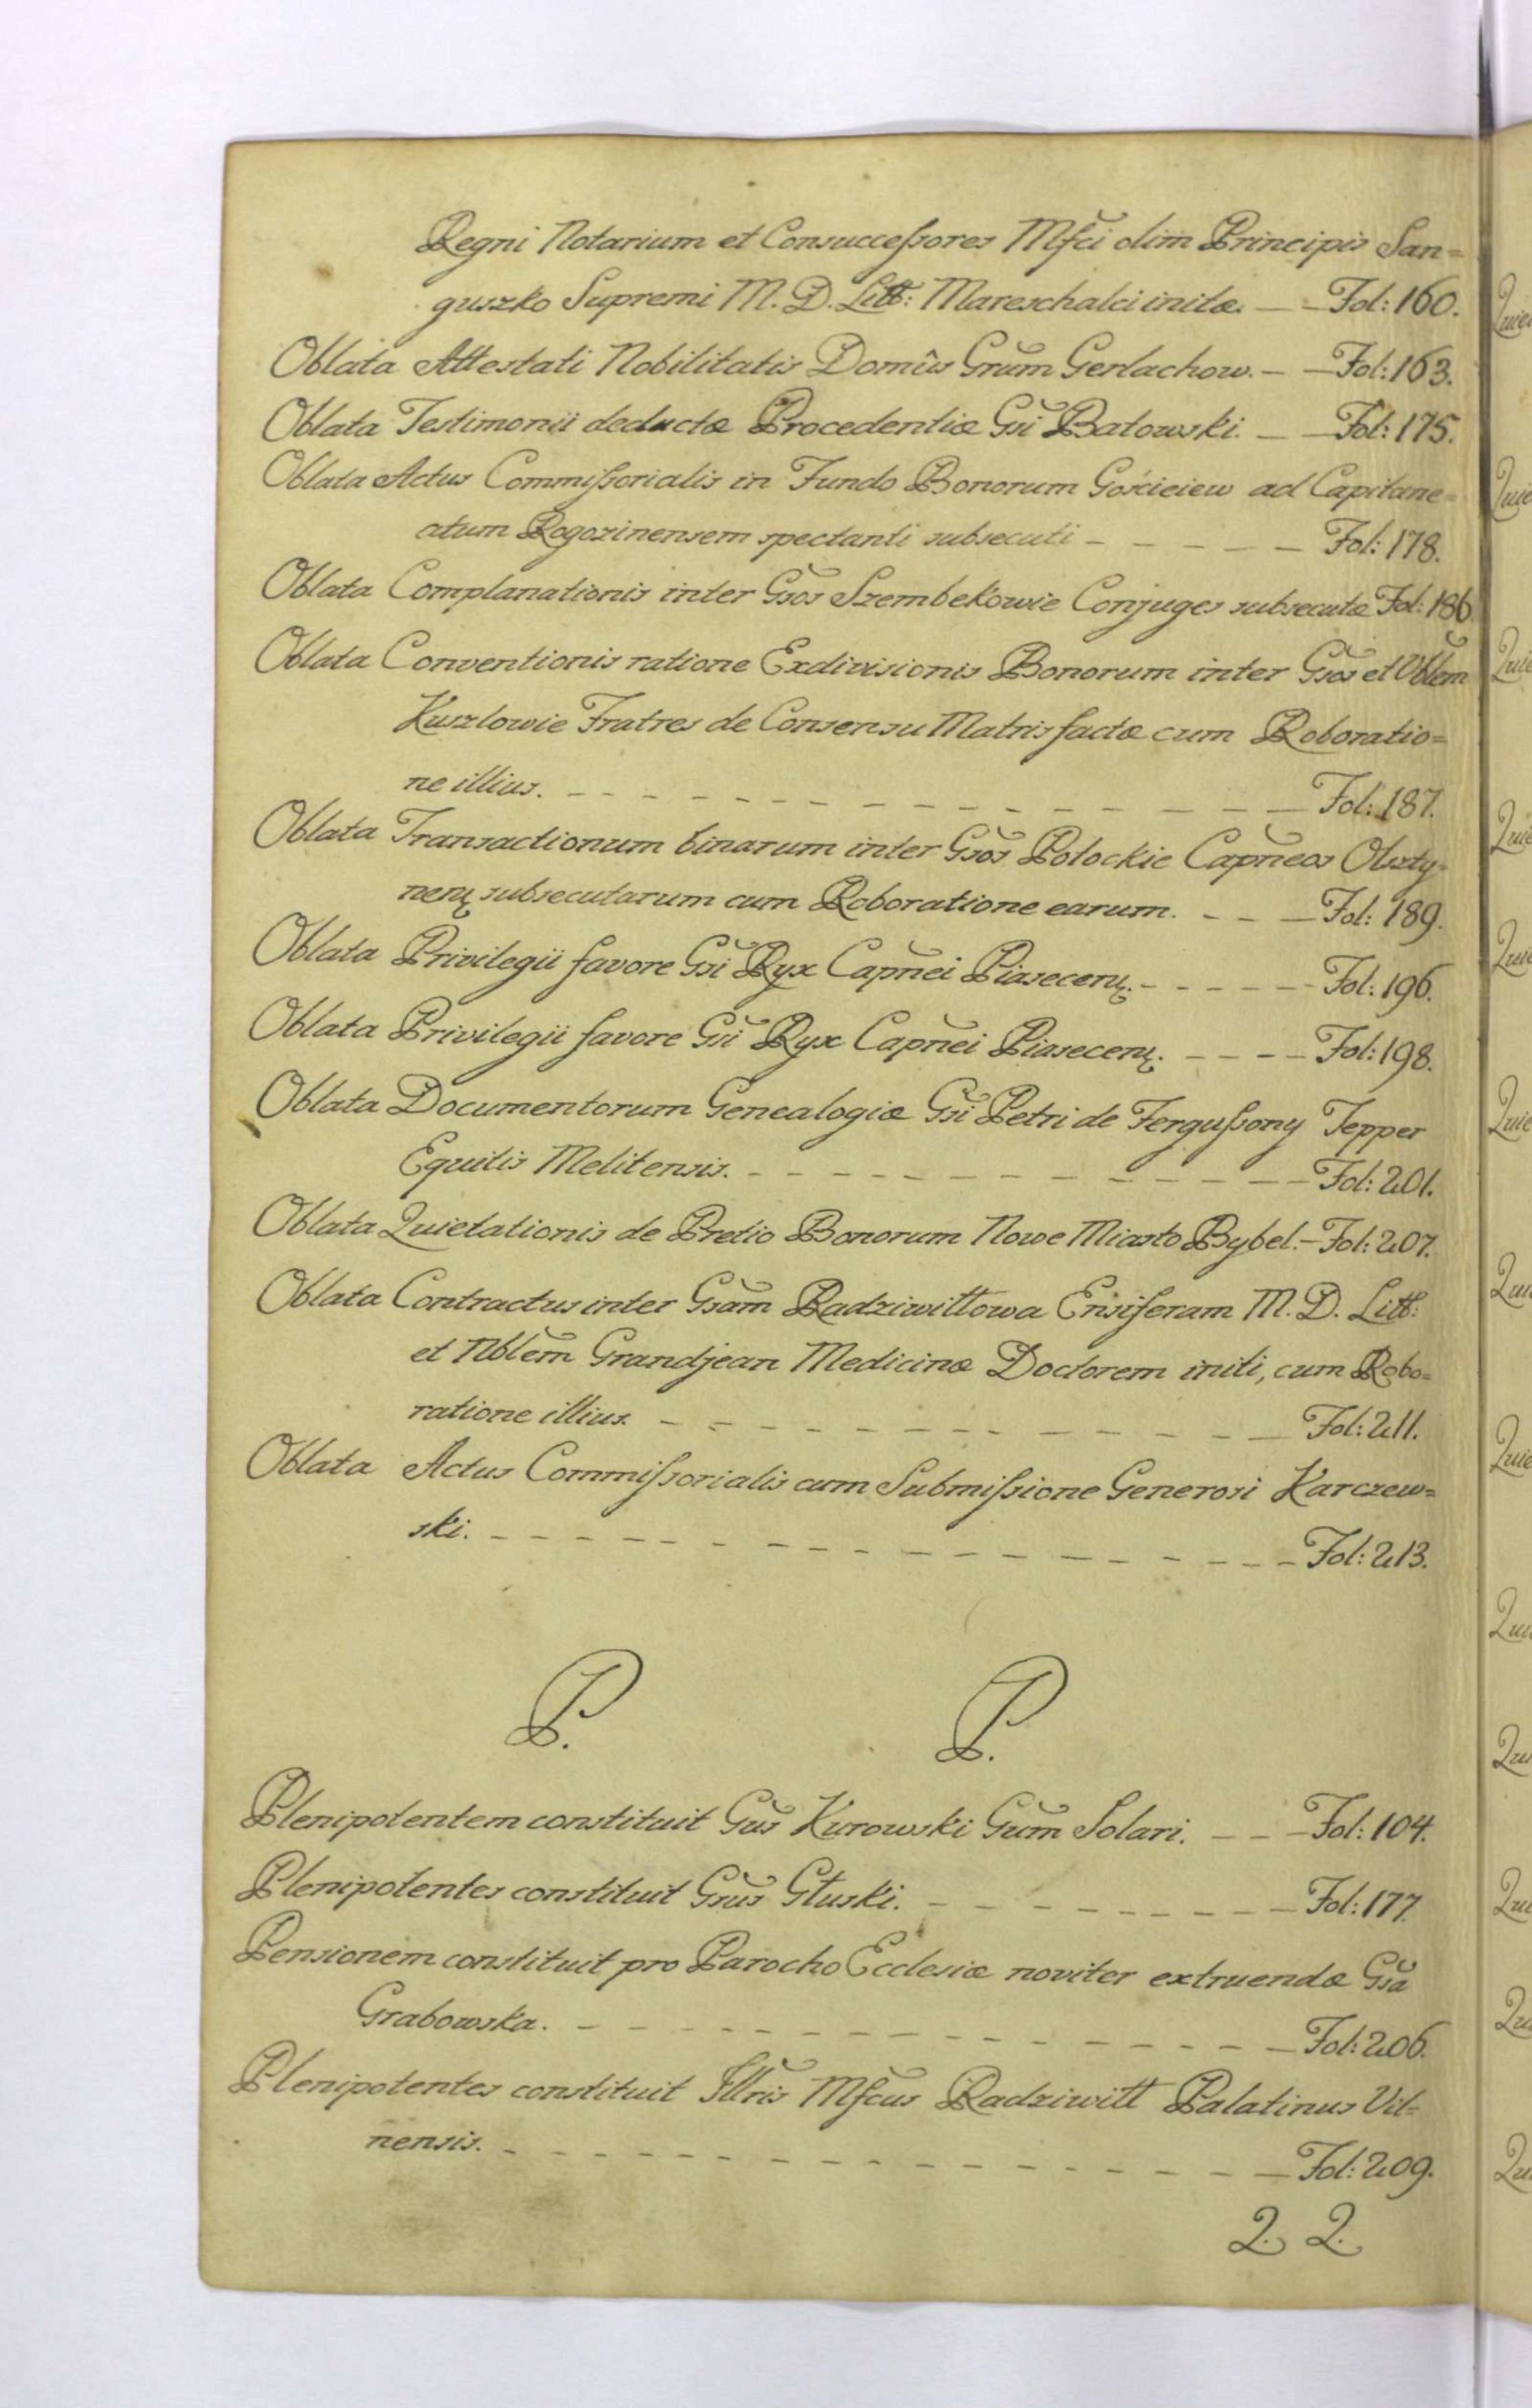 Regni Notarium et Consuccessores Mfci olim Principis San=
guszko Supremi M. D. Litt: Mareschalci initæ. — — Fol: 160.
Oblata Attestati Nobilitatis Domûs Grum Gerlachow. — — Fol: 163.
Oblata Testimonii deductæ Procedentiæ Gsi Batowski. — — Fol: 175.
Oblata Actus Commissorialis in Fundo Bonorum Gościeiew ad Capitane=
atum Rogozinensem spectanti subsecuti — — — — — Fol: 178.
Oblata Complanationis inter Gsos Szembekowie Conjuges subsecutæ Fol: 186.
Oblata Conventionis ratione Exdivisionis Bonorum inter Gsos et Nblem
Kuszlowie Fratres de Consensu Matris factæ cum Roboratio=
ne illius. — — — — — — — — — — — — — Fol: 187.
Oblata Transactionum binarum inter Gsos Potockie Capneos Olszty=
nen subsecutarum cum Roboratione earum. — — — Fol: 189.
Oblata Privilegii favore Gsi Ryx Capnei Piasecen. — — — — — — Fol: 196.
Oblata Privilegii favore Gsi Ryx Capnei Piasecen. — — — — Fol: 198.
Oblata Documentorum Genealogiæ Gsi Petri de Fergussony Tepper
Equitis Melitensis. — — — — — — — — — — — Fol: 201.
Oblata Quietationis de Pretio Bonorum Nowe Miasto Bybel. — Fol: 207.
Oblata Contractus inter Gsam Radziwiłłowa Ensiferam M. D. Litt:
et Nblem Grandjean Medicinæ Doctorem initi, cum Robo=
ratione illius. — — — — — — — — — — — — — Fol: 211.
Oblata Actus Commissorialis cum Submissione Generosi Karczew=
ski. — — — — — — — — — — — — — — — — — Fol: 213.
P. P.
Plenipotentem constituit Gus Kurowski Gum Solari. — — — Fol: 104.
Plenipotentes constituit Gsus Głuski. — — — — — — — — — Fol: 177.
Pensionem constituit pro Parocho Ecclesiæ noviter extruendæ Gsa
Grabowska. — — — — — — — — — — — — — Fol: 206.
Plenipotentes constituit Illris Mfcus Radziwiłł Palatinus Vil=
nensis. — — — — — — — — — — — — — — — Fol: 209.
Q. Q.